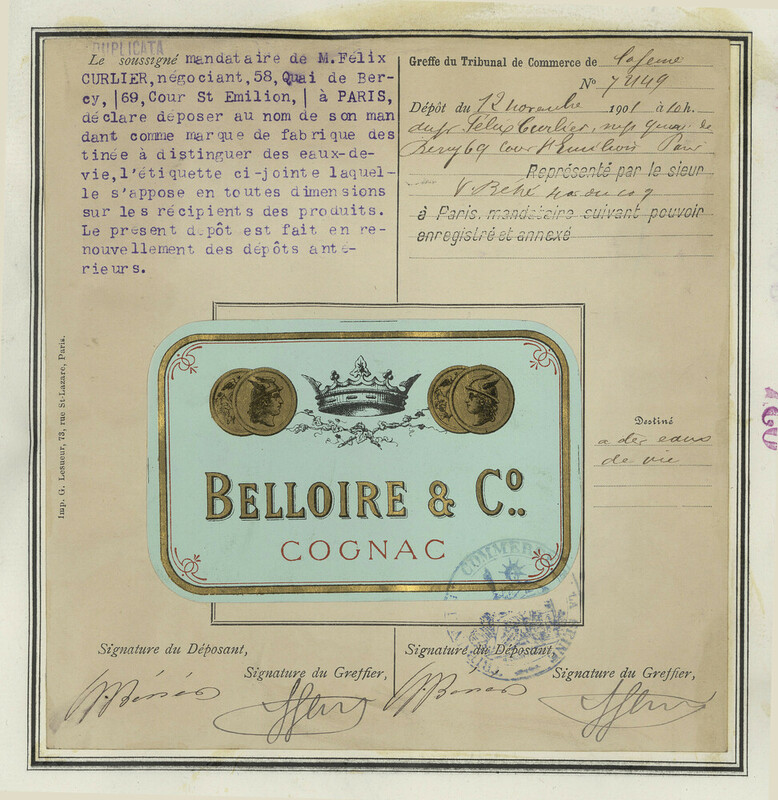 DUPLICATA
Le soussigné mandataire de M.Félix
CURLIER,négociant,58, Quai de Ber-
cy, |69, Cour St Emilion, | à PARIS,
déclare déposer au nom de son man
dant comme marque de fabrique des
tinée à distinguer des eaux-de-
vie,l'étiquette ci-jointe laquel-
le s'appose en toutes dimensions
sur les récipients des produits.
Le présent dépôt est fait en re-
nouvellement des dépôts anté-
rieurs.
Greffe du Tribunal de Commerce de la Seine
N° 72449
Dépôt du 12 novembre 1901 à 10h.
Félix Curlier, quai de
Bercy 69 cour St Emilion Paris
Représenté par le sieur
à Paris, mandataire suivant pouvoir
enregistré et annexé
Imp. G. Lesueur, 73, rue St-Lazare, Paris.
BELLOIRE & Cº..
COGNAC
Destiné
à des eaux
de vie
COMMERCE
Signature du Déposant,
Signature du Greffier,
Signature du Déposant,
Signature du Greffier,